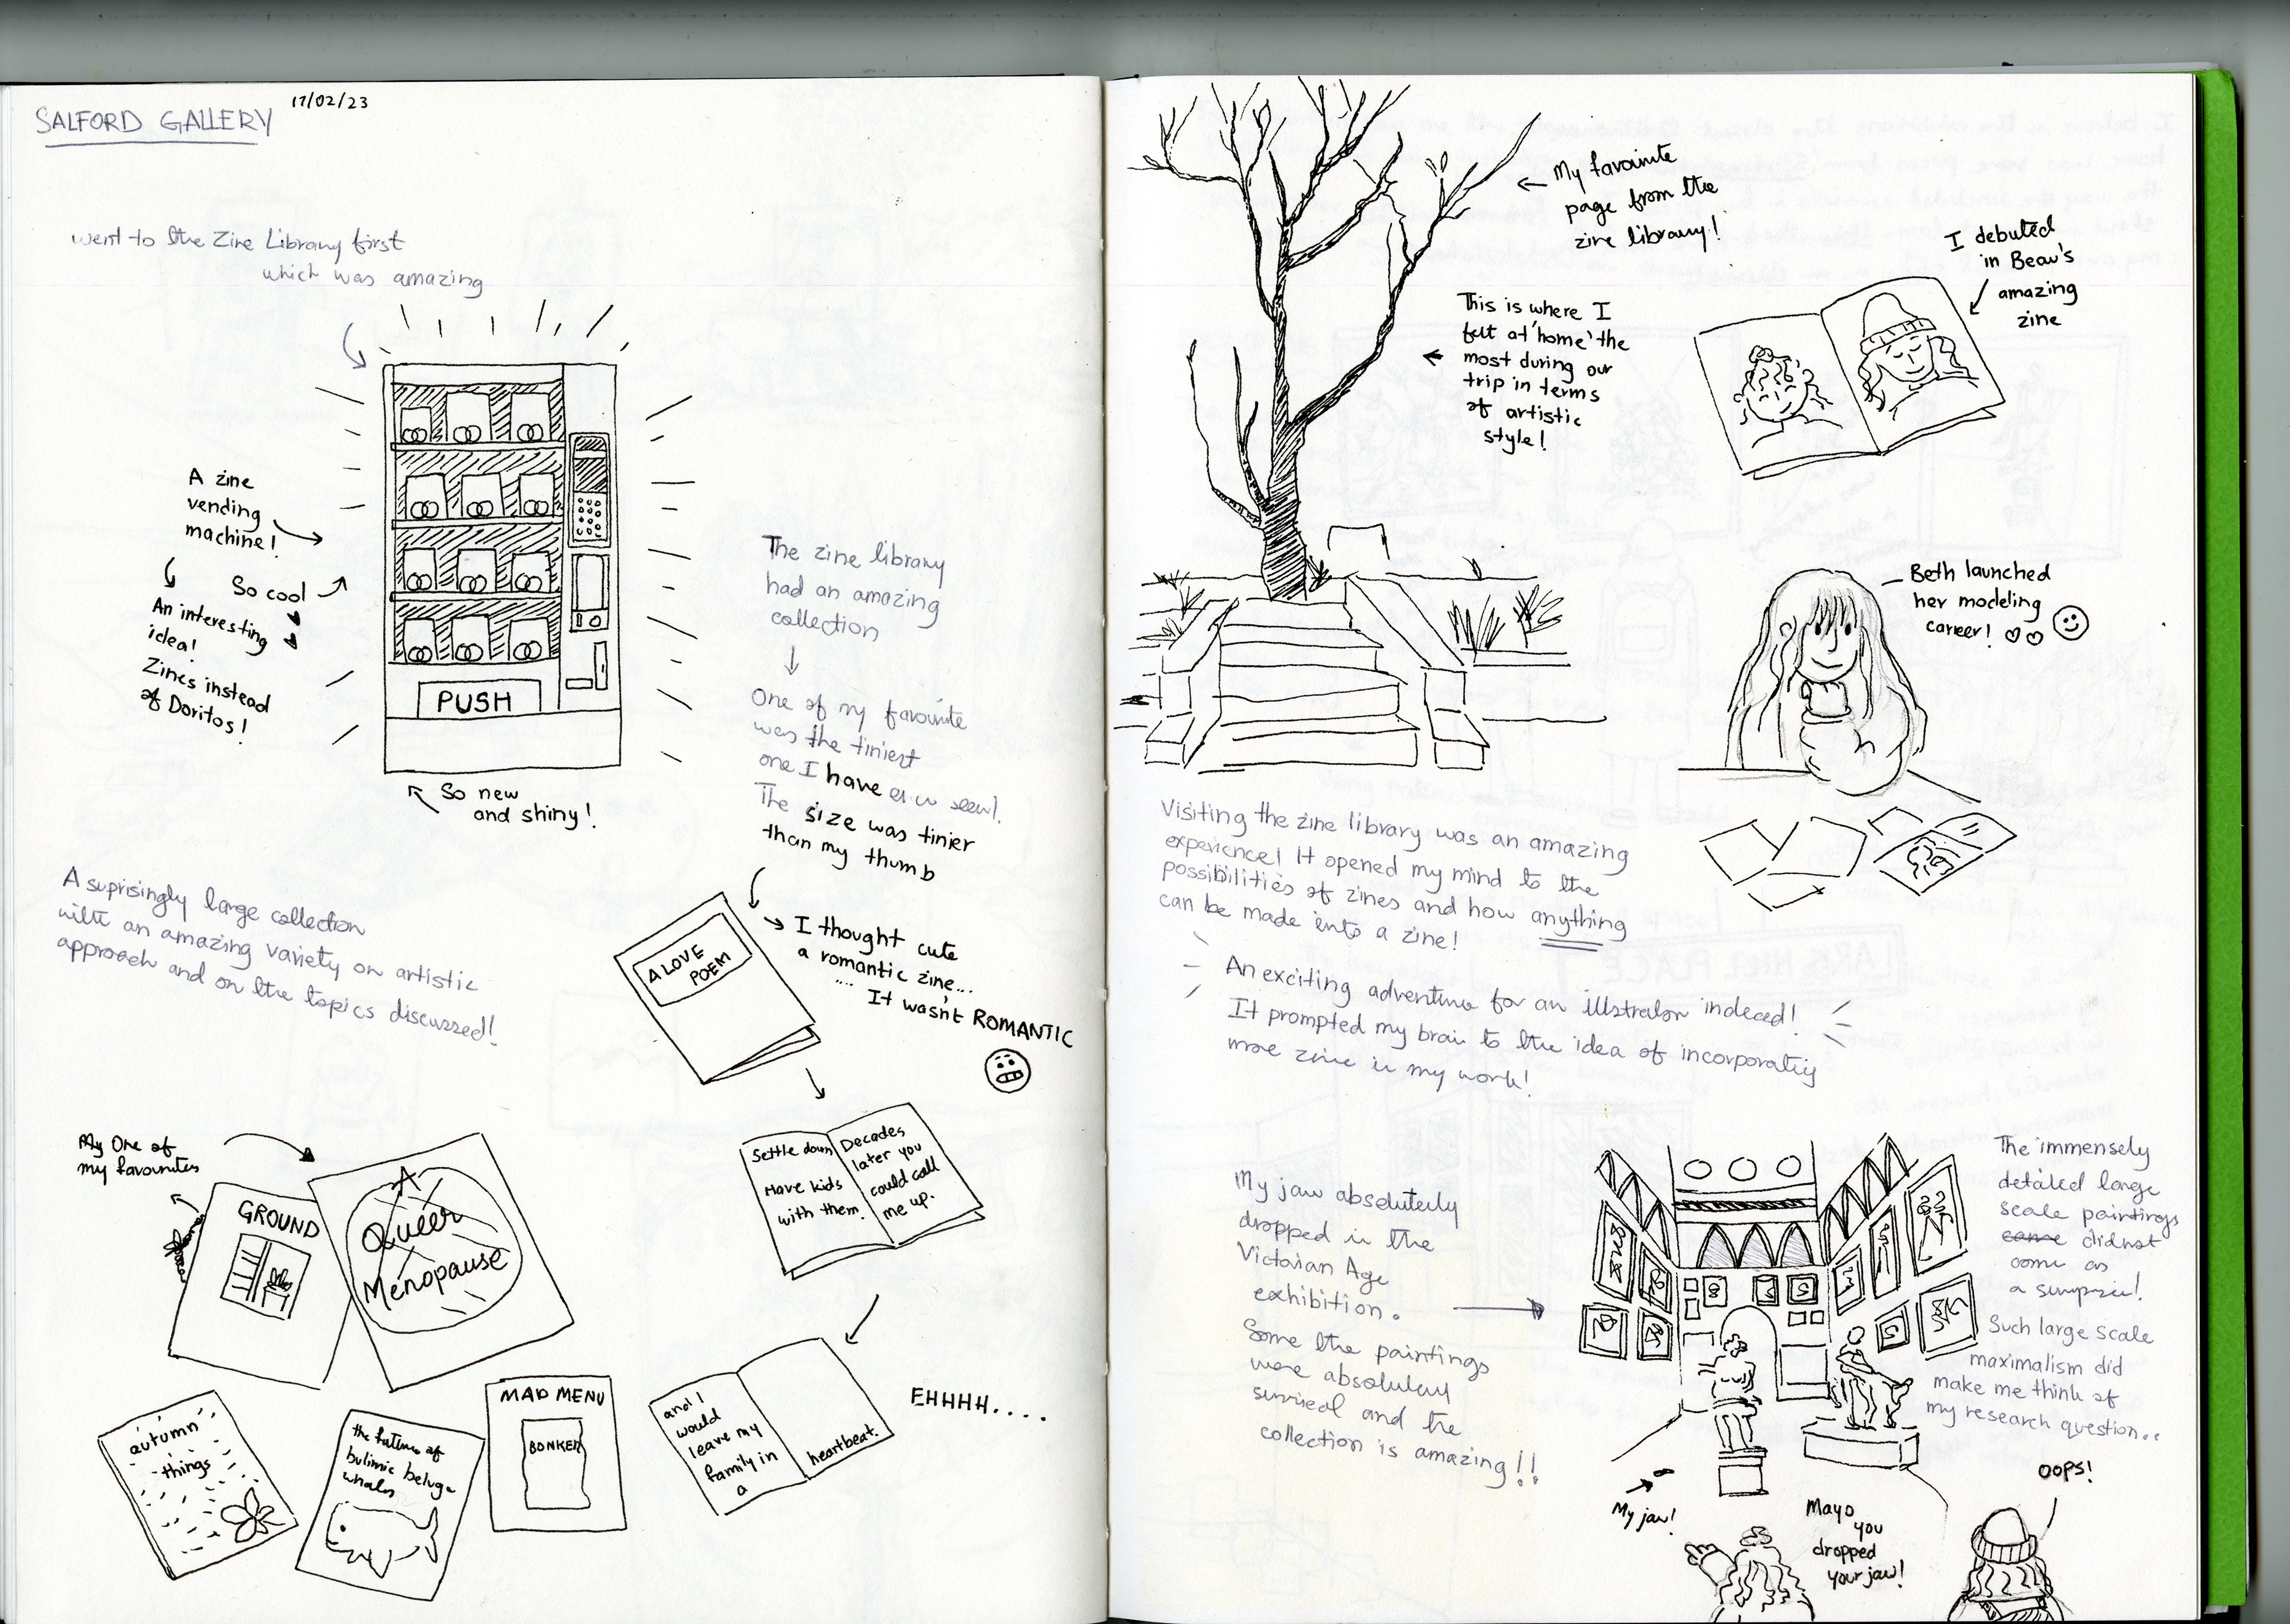 SALFORD GALLERY
17/02/23
went to the Zine Library first
which was amazing
A zine
vending
machine!
So cool
An interesting
idea!
Zines instead
of Doritos!
PUSH
So new
and shiny!
The zine library
had an amazing
collection
One of my favourite
was the tiniest
one I have ever seen!
The size was tinier
than my thumb
A LOVE
POEM
I thought cute
a romantic zine...
.... It wasn't ROMANTIC
Settle down
Have kids
with them.
Decades
later you
could call
me up.
and I
would
leave my
family in
a
heartbeat.
EHHHH....
A suprisingly large collection
with an amazing variety on artistic
approach and on the topics discussed!
My One of
my favourites
GROUND
A
Queer
Menopause
autumn
things
the future of
bulimic beluga
whales
MAD MENU
BONKER
My favourite
page from the
zine library!
This is where I
felt at 'home' the
most during our
trip in terms
of artistic
style!
I debuted
in Beau's
amazing
zine
Beth launched
her modeling
career!
Visiting the zine library was an amazing
experience! It opened my mind to the
possibilities of zines and how anything
can be made into a zine!
An exciting adventure for an illstrator indeed!
It prompted my brain to the idea of incorporatig
more zine in my work!
My jaw absolutely
dropped in the
Victorian Age
exhibition.
Some the paintings
were absolutely
surreal and the
collection is amazing!!
The immensely
detailed large
scale paintings
came didnot
come as
a surprise!
Such large scale
maximalism did
make me think of
my research question..
My jaw!
Mayo
you
dropped
your jaw!
OOPS!